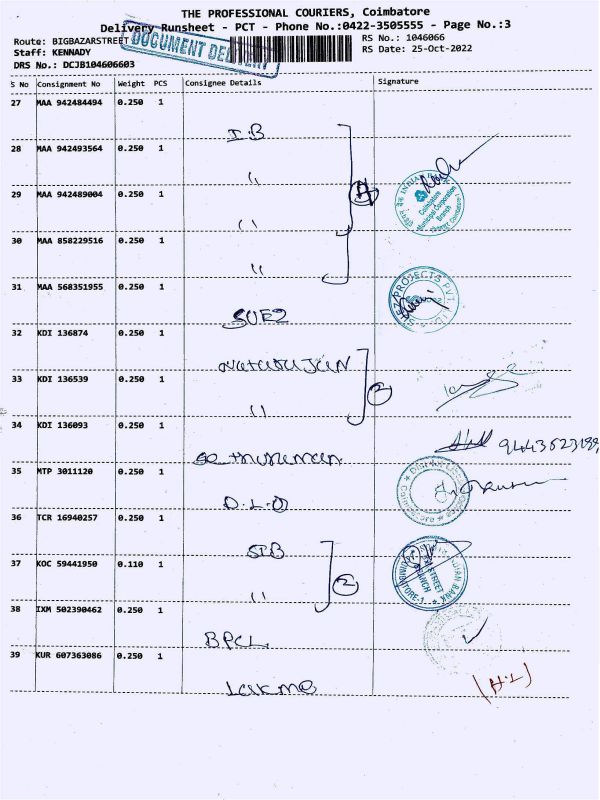 THE PROFESSIONAL COURIERS, Coimbatore
Delivery Runsheet - PCT - Phone No.:0422-3505555 - Page No.:3
Route: BIGBAZARSTREET
RS No.: 1046066
Staff: KENNADY
RS Date: 25-Oct-2022
DRS No.: DCJB104606603
DOCUMENT DELIVERY
S No Consignment No Weight PCS Consignee Details Signature
27 MAA 942484494 0.250 1
I.B
28 MAA 942493564 0.250 1
"
29 MAA 942489004 0.250 1
"
30 MAA 858229516 0.250 1
"
4
INDIAN
Coimbatore
Municipal Corporation
Branch
31 MAA 568351955 0.250 1
SUEZ
SUEZ PROJECTS PVT. LTD.
32 KDI 136874 0.250 1
33 KDI 136539 0.250 1
"
2
34 KDI 136093 0.250 1
35 MTP 3011120 0.250 1
D.L.O
36 TCR 16940257 0.250 1
37 KOC 59441950 0.110 1
"
2
INDIAN BANK
STREET
BRANCH
COIMBATORE-1
38 IXM 502390462 0.250 1
BPCL
39 KUR 607363086 0.250 1
Lakme